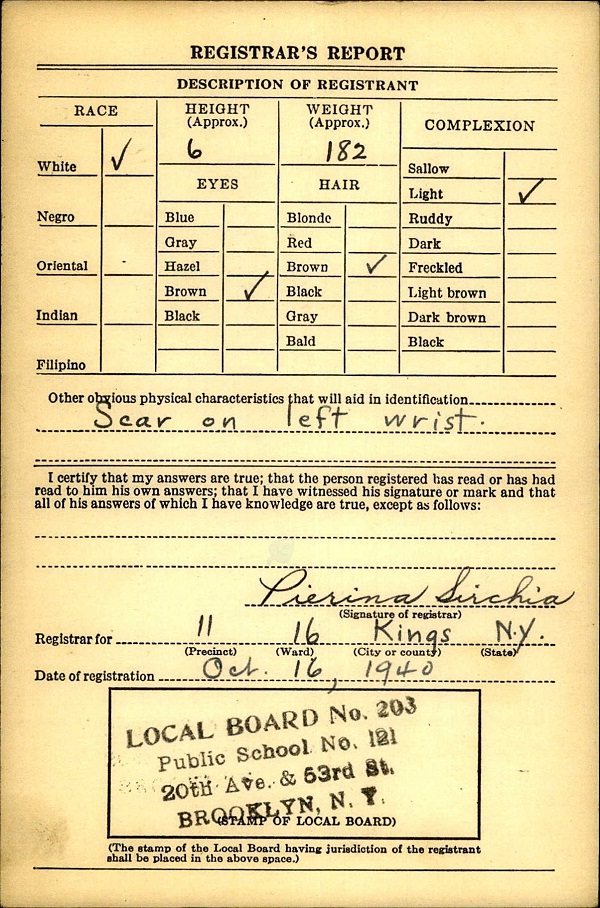 REGISTRAR'S REPORT
DESCRIPTION OF REGISTRANT
RACE
HEIGHT (Approx.)
WEIGHT (Approx.)
COMPLEXION
White ✓
6
182
Sallow
Light ✓
EYES
HAIR
Negro
Blue
Blonde
Ruddy
Gray
Red
Dark
Oriental
Hazel
Brown ✓
Freckled
Brown ✓
Black
Light brown
Indian
Black
Gray
Dark brown
Bald
Black
Filipino
Other obvious physical characteristics that will aid in identification
Scar on left wrist.
I certify that my answers are true; that the person registered has read or has had
read to him his own answers; that I have witnessed his signature or mark and that
all of his answers of which I have knowledge are true, except as follows:
Pierina Sirchia
(Signature of registrar)
Registrar for 11 16 Kings N.Y.
(Precinct) (Ward) (City or county) (State)
Date of registration Oct. 16, 1940
LOCAL BOARD No. 203
Public School No. 121
20th Ave. & 53rd St.
BROOKLYN, N. Y.
(STAMP OF LOCAL BOARD)
(The stamp of the Local Board having jurisdiction of the registrant
shall be placed in the above space.)